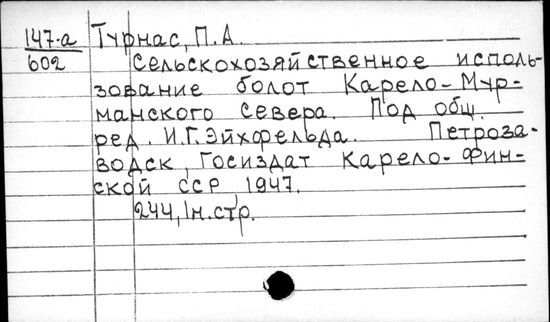 147-а Турнас, П.А.
602 Сельскохозяйственное исполь-
зование болот Карело-Мур-
манского севера. Под общ.
ред. И.Г.Эйхфельда. Петроза-
водск, Госиздат Карело-Фин-
ской ССР, 1947.
244, 1н.стр.